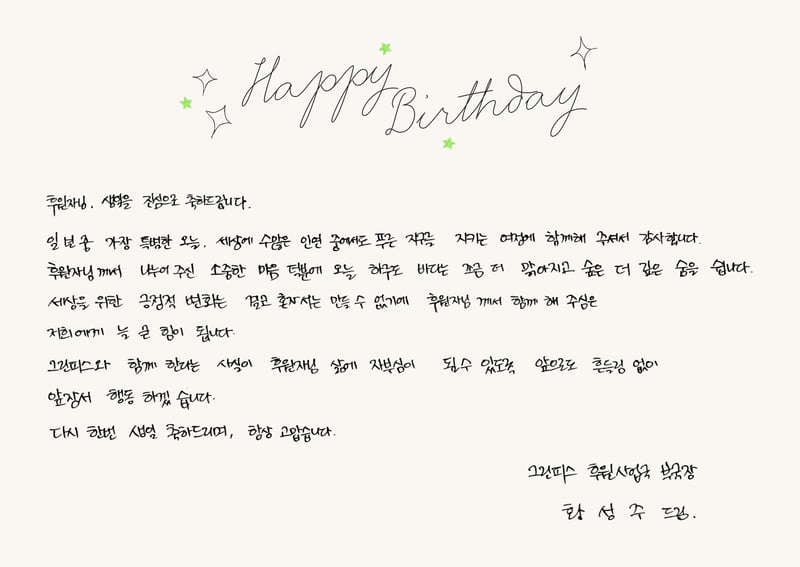 Happy
Birthday
후원자님. 생일을 진심으로 축하드립니다.
일 년 중 가장 특별한 오늘. 세상에 수많은 인연 중에서도 푸른 지구를 지키는 여정에 함께해 주셔서 감사합니다.
후원자님께서 나누어 주신 소중한 마음 덕분에 오늘 하루도 바다는 조금 더 맑아지고 숲은 더 깊은 숨을 쉽니다.
세상을 위한 긍정적 변화는 결코 혼자서는 만들 수 없기에 후원자님 께서 함께 해 주심은
저희에게 늘 큰 힘이 됩니다.
그린피스와 함께 한다는 사실이 후원자님 삶에 자부심이 될 수 있도록 앞으로도 흔들림 없이
앞장서 행동 하겠 습니다.
다시 한번 생일 축하드리며, 항상 고맙습니다.
그린피스 후원사업국 부국장
황 성 주 드림.